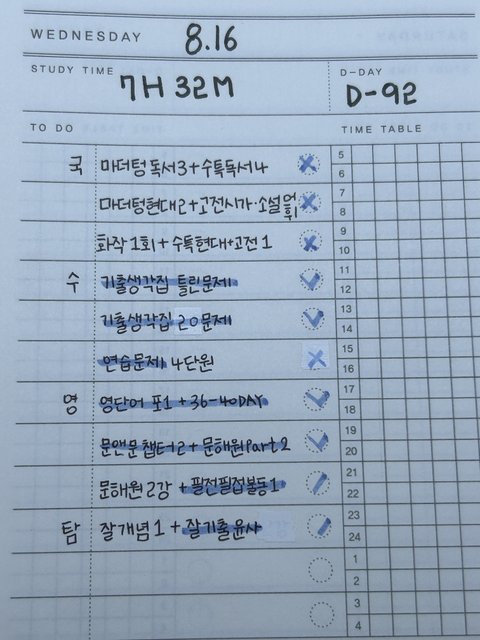 WEDNESDAY 8.16
STUDY TIME D-DAY
7H 32M D-92
TO DO TIME TABLE
국 마더텅독서3+수특독서4
마더텅현대2+고전시가·소설 어휘1
화작1회+수특현대+고전1
수 기출생각집 틀린문제1
기출생각집 20문제1
연습문제1 4단원
영 영단어 포1 + 36-40DAY
문앤문 챕터2 + 문해원Part 2
문해원 2강 + 필전필접불등1
탐 잘개념1 + 잘기출윤사
5
6
7
8
9
10
11
12
13
14
15
16
17
18
19
20
21
22
23
24
1
2
3
4